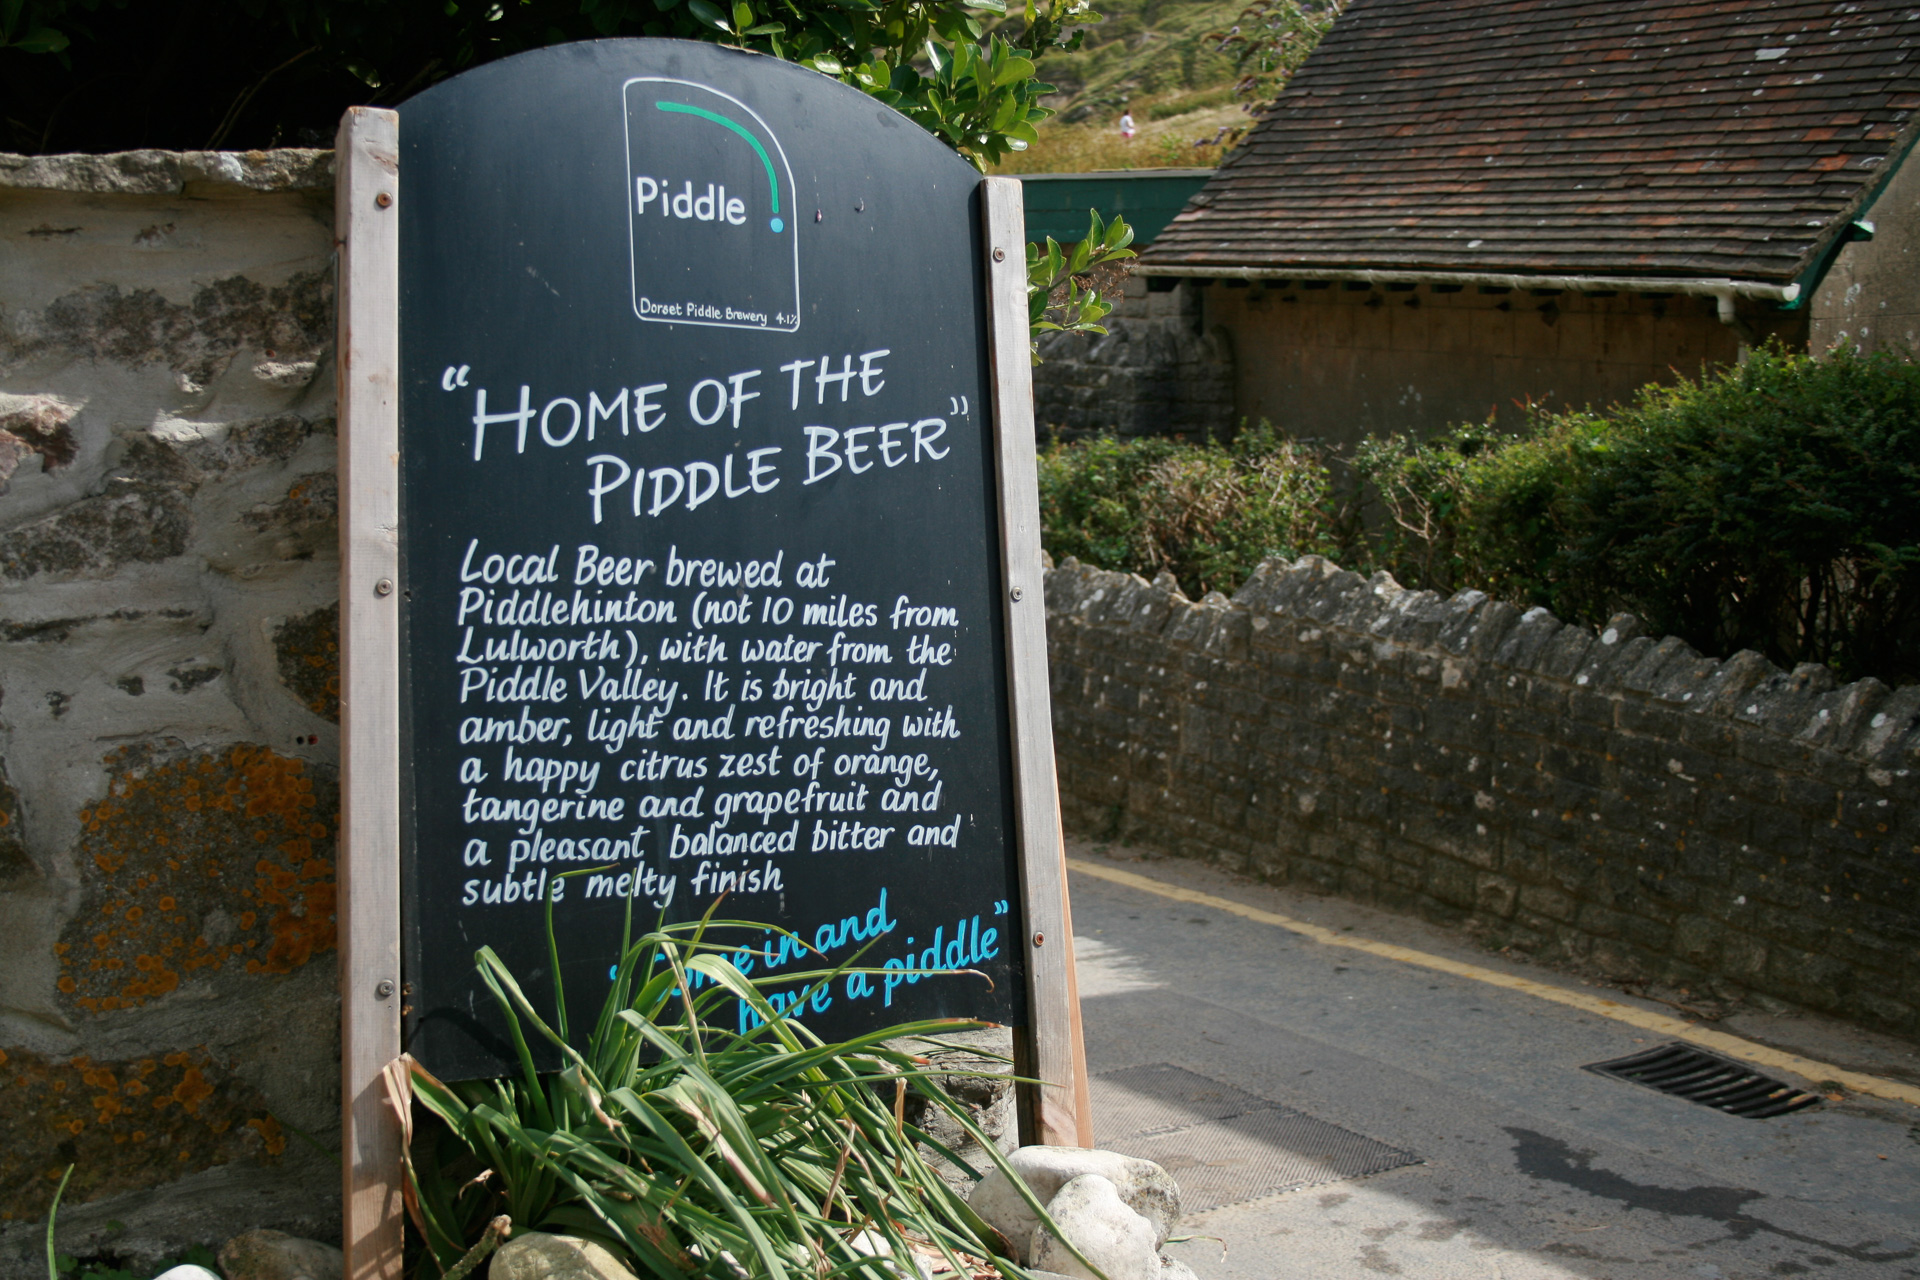 Piddle
Dorset Piddle Brewery 4.1%
"HOME OF THE
PIDDLE BEER"
Local Beer brewed at
Piddlehinton (not 10 miles from
Lulworth), with water from the
Piddle Valley. It is bright and
amber, light and refreshing with
a happy citrus zest of orange,
tangerine and grapefruit and
a pleasant balanced bitter and
subtle melty finish
"Come in and
have a piddle"